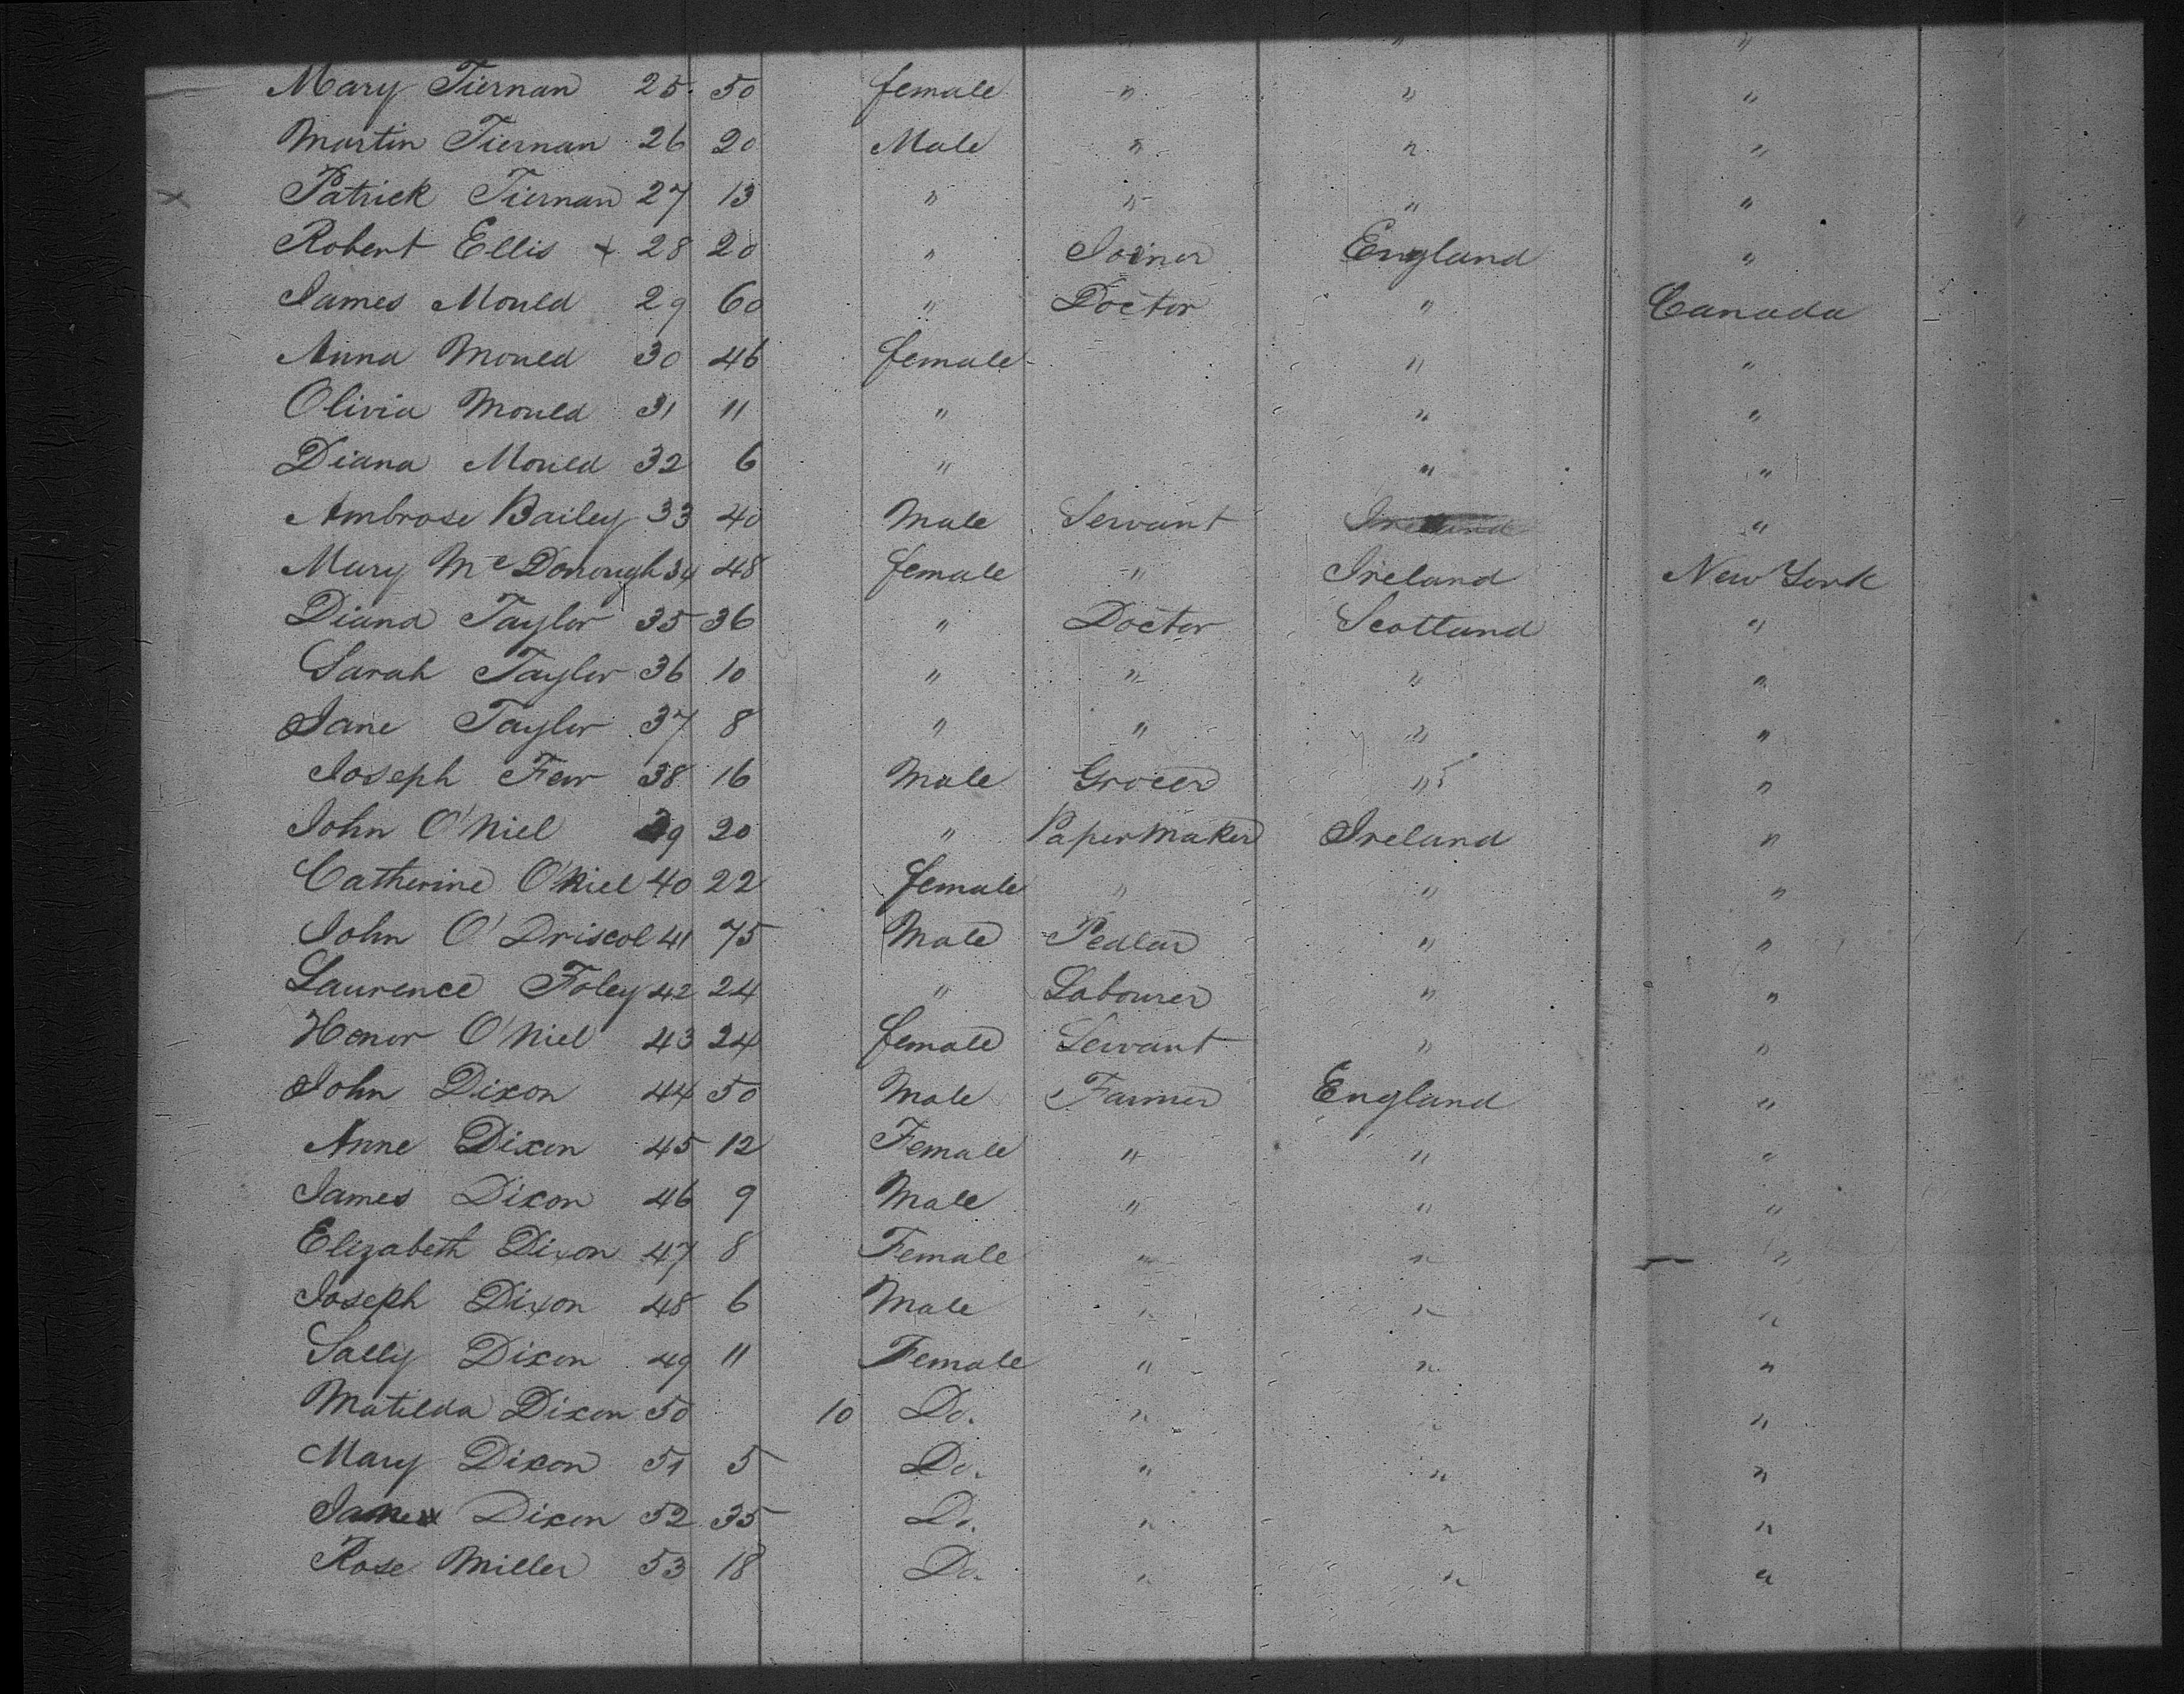 " " "
Mary Tiernan 25 50 female " " "
Martin Tiernan 26 20 Male " " "
Patrick Tiernan 27 13 " " " "
Robert Ellis x 28 20 " Joiner England "
James Mould 29 60 " Doctor " Canada
Anna Mould 30 46 female " "
Olivia Mould 31 11 " " "
Diana Mould 32 6 " " "
Ambrose Bailey 33 40 Male Servant "
Mary McDonough 34 48 female " Ireland New York
Diana Taylor 35 36 " Doctor Scotland "
Sarah Taylor 36 10 " " " "
Jane Taylor 37 8 " " " "
Joseph Fear 38 16 Male Grocer " "
John O'Niel 39 20 " Papermaker Ireland "
Catherine O'Niel 40 22 female " " "
John O'Driscol 41 75 Male Pedlar " "
Laurence Foley 42 24 " Labourer " "
Honor O'Niel 43 24 female Servant " "
John Dixon 44 50 Male Farmer England "
Anne Dixon 45 12 Female " " "
James Dixon 46 9 Male " " "
Elizabeth Dixon 47 8 Female " " "
Joseph Dixon 48 6 Male " " "
Sally Dixon 49 11 Female " " "
Matilda Dixon 50 10 Do. " " "
Mary Dixon 51 5 Do. " " "
Jane Dixon 52 35 Do. " " "
Rose Miller 53 18 Do. " " "